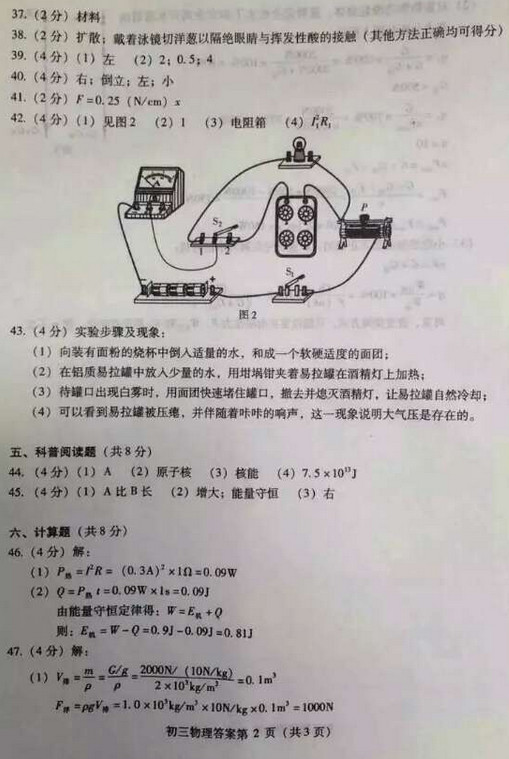 37. (2分) 材料
38. (2分) 扩散；戴着泳镜切洋葱以隔绝眼睛与挥发性酸的接触（其他方法正确均可得分）
39. (4分) (1) 左 (2) 2；0.5；4
40. (4分) 右；倒立；左；小
41. (2分) F=0.25 (N/cm) x
42. (4分) (1) 见图2 (2) 1 (3) 电阻箱 (4) I₁²R₁
A
S₂
P
1 2
S₁
- +
图2
43. (4分) 实验步骤及现象：
(1) 向装有面粉的烧杯中倒入适量的水，和成一个软硬适度的面团；
(2) 在铝质易拉罐中放入少量的水，用坩埚钳夹着易拉罐在酒精灯上加热；
(3) 待罐口出现白雾时，用面团快速堵住罐口，撤去并熄灭酒精灯，让易拉罐自然冷却；
(4) 可以看到易拉罐被压瘪，并伴随着咔咔的响声，这一现象说明大气压是存在的。
五、科普阅读题（共8分）
44. (4分) (1) A (2) 原子核 (3) 核能 (4) 7.5×10¹³J
45. (4分) (1) A比B长 (2) 增大；能量守恒 (3) 右
六、计算题（共8分）
46. (4分) 解：
(1) P热=I²R= (0.3A)²×1Ω=0.09W
(2) Q=P热 t=0.09W×1s=0.09J
由能量守恒定律得：W=E机+Q
则：E机=W-Q=0.9J-0.09J=0.81J
47. (4分) 解：
(1) V排=m/ρ=G/g/ρ=2000N/ (10N/kg)/2×10³kg/m³=0.1m³
F浮=ρgV排=1.0×10³kg/m³×10N/kg×0.1m³=1000N
初三物理答案第2页（共3页）